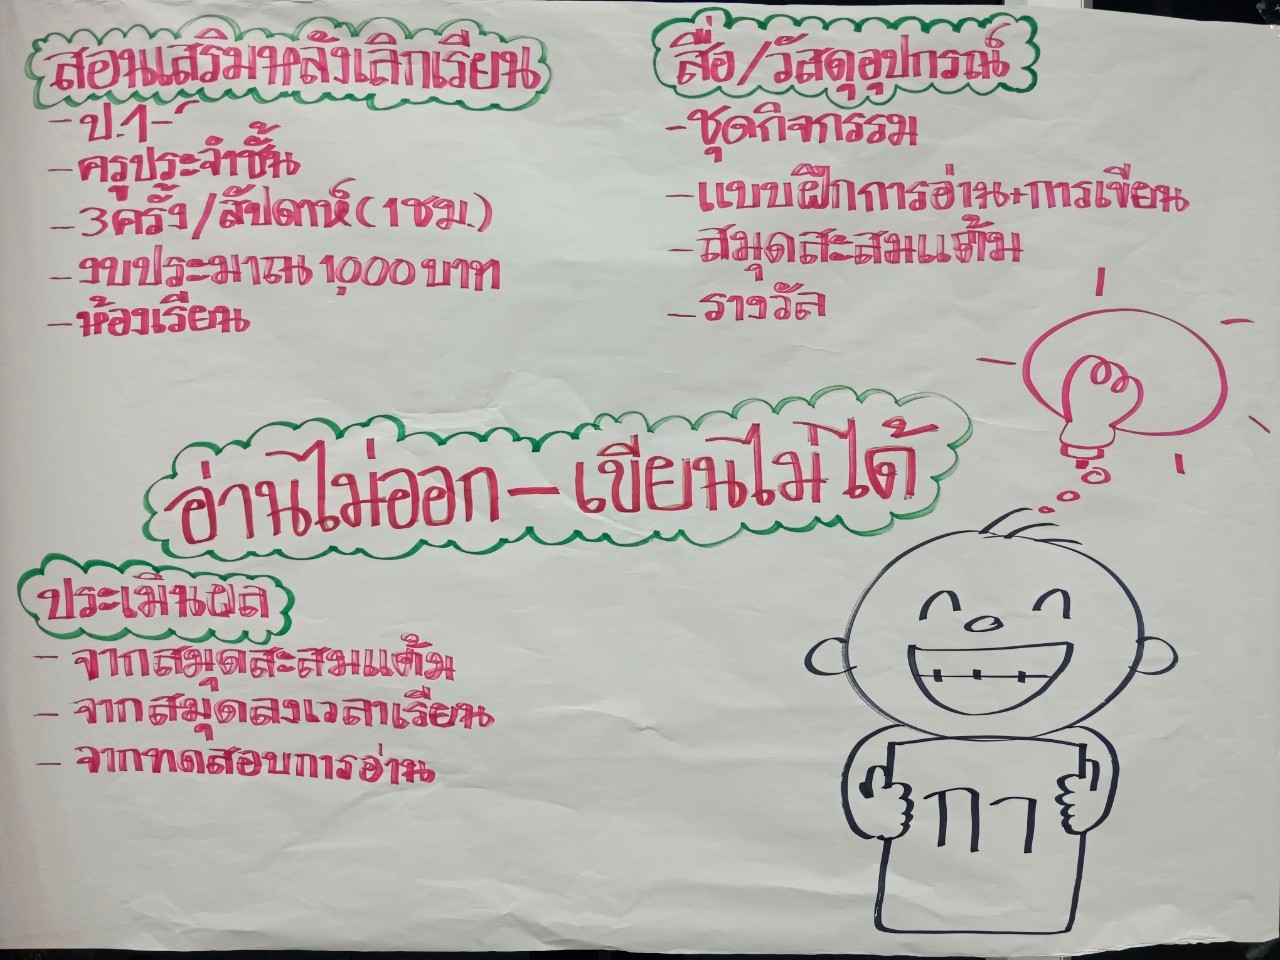 สอนเสริมหลังเลิกเรียน
- ป.1-
- ครูประจำชั้น
- 3ครั้ง/สัปดาห์(1ชม.)
- งบประมาณ 1,000 บาท
- ห้องเรียน
สื่อ/วัสดุอุปกรณ์
- ชุดกิจกรรม
- แบบฝึกการอ่าน+การเขียน
- สมุดสะสมแต้ม
- รางวัล
อ่านไม่ออก - เขียนไม่ได้
ประเมินผล
- จากสมุดสะสมแต้ม
- จากสมุดลงเวลาเรียน
- จากทดสอบการอ่าน
กา